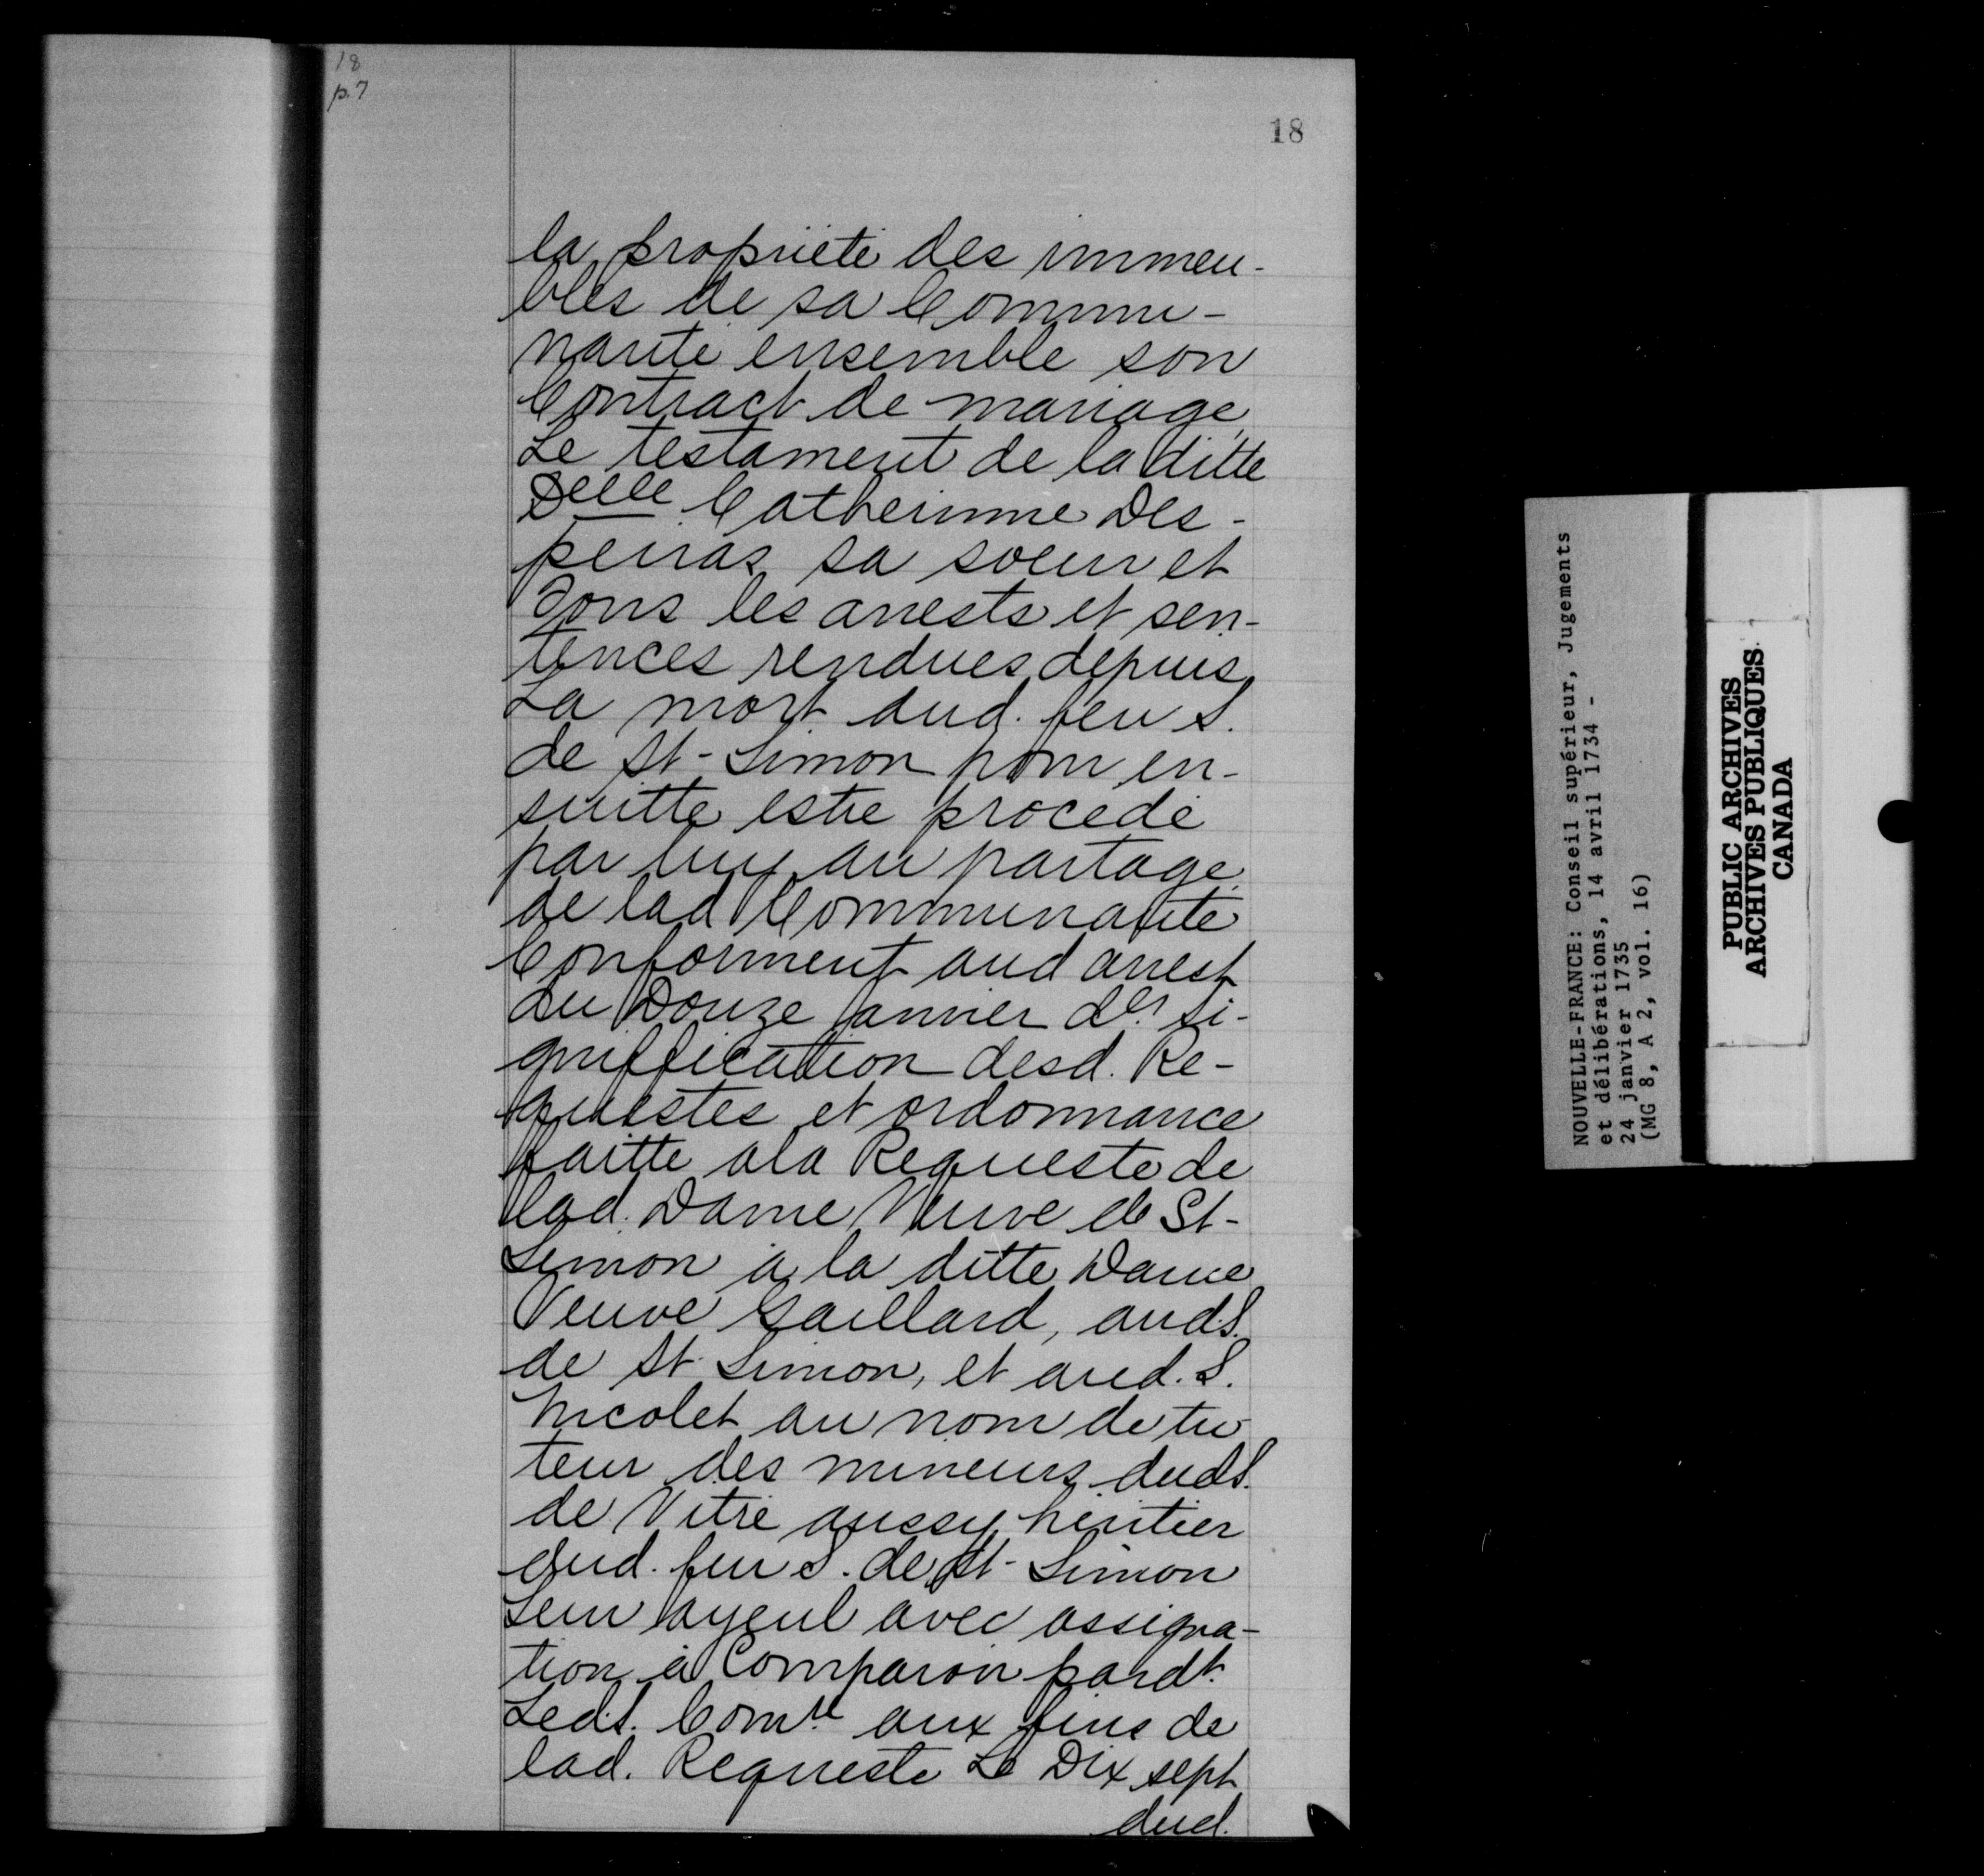 18
p.7
18
la proprieté des immeu-
bles de sa Commu-
nauté ensemble son
Contract de mariage
Le testament de la ditte
Delle Catherinne Des-
peiras sa soeur et
Tous les arrests et sen-
tences rendues depuis
La mort dud. feu S.
de St-Simon pour en-
suitte estre procedé
par luy au partage
de lad Communauté
Conforment aud arrest
du Douze Janvier der si-
gniffication desd. Re-
questes et ordonnance
faitte ala Requeste de
lad. Dame Veuve de St-
Simon a la ditte Dame
Veuve Gaillard, aud S.
de St Simon, et aud. S.
Nicolet au nom de tu-
teur des mineurs dud S.
de Vitré aussy heritier
dud. feu S. de St-Simon
Leur ayeul avec assigna-
tion à Comparoir pardt.
Led S. Comre aux fins de
lad. Requeste Le Dix sept
dud.
NOUVELLE-FRANCE: Conseil supérieur, Jugements
et délibérations, 14 avril 1734 -
24 janvier 1735
(MG 8, A 2, vol. 16)
PUBLIC ARCHIVES
ARCHIVES PUBLIQUES
CANADA